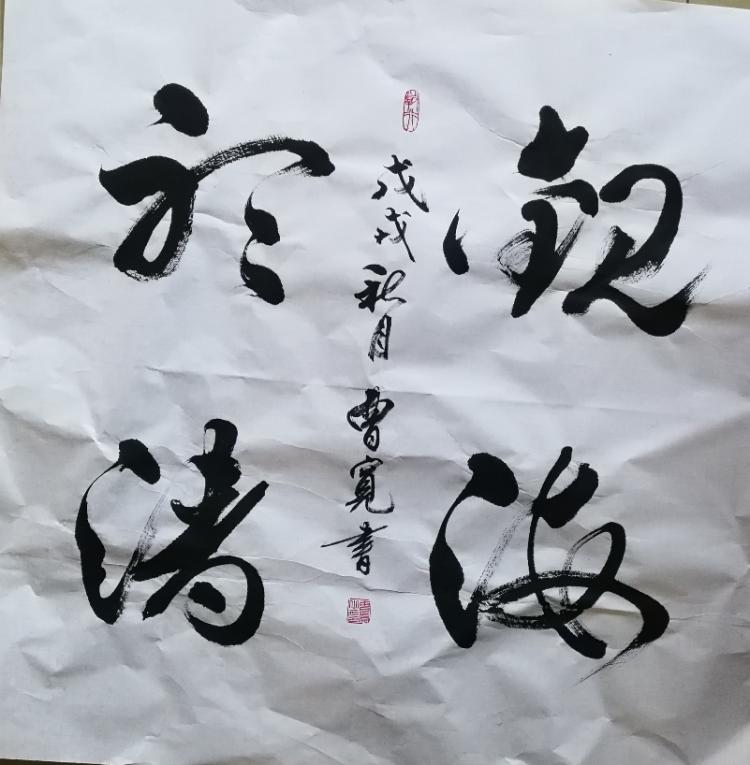 觀海
聽濤
戊戌秋月曹寬書